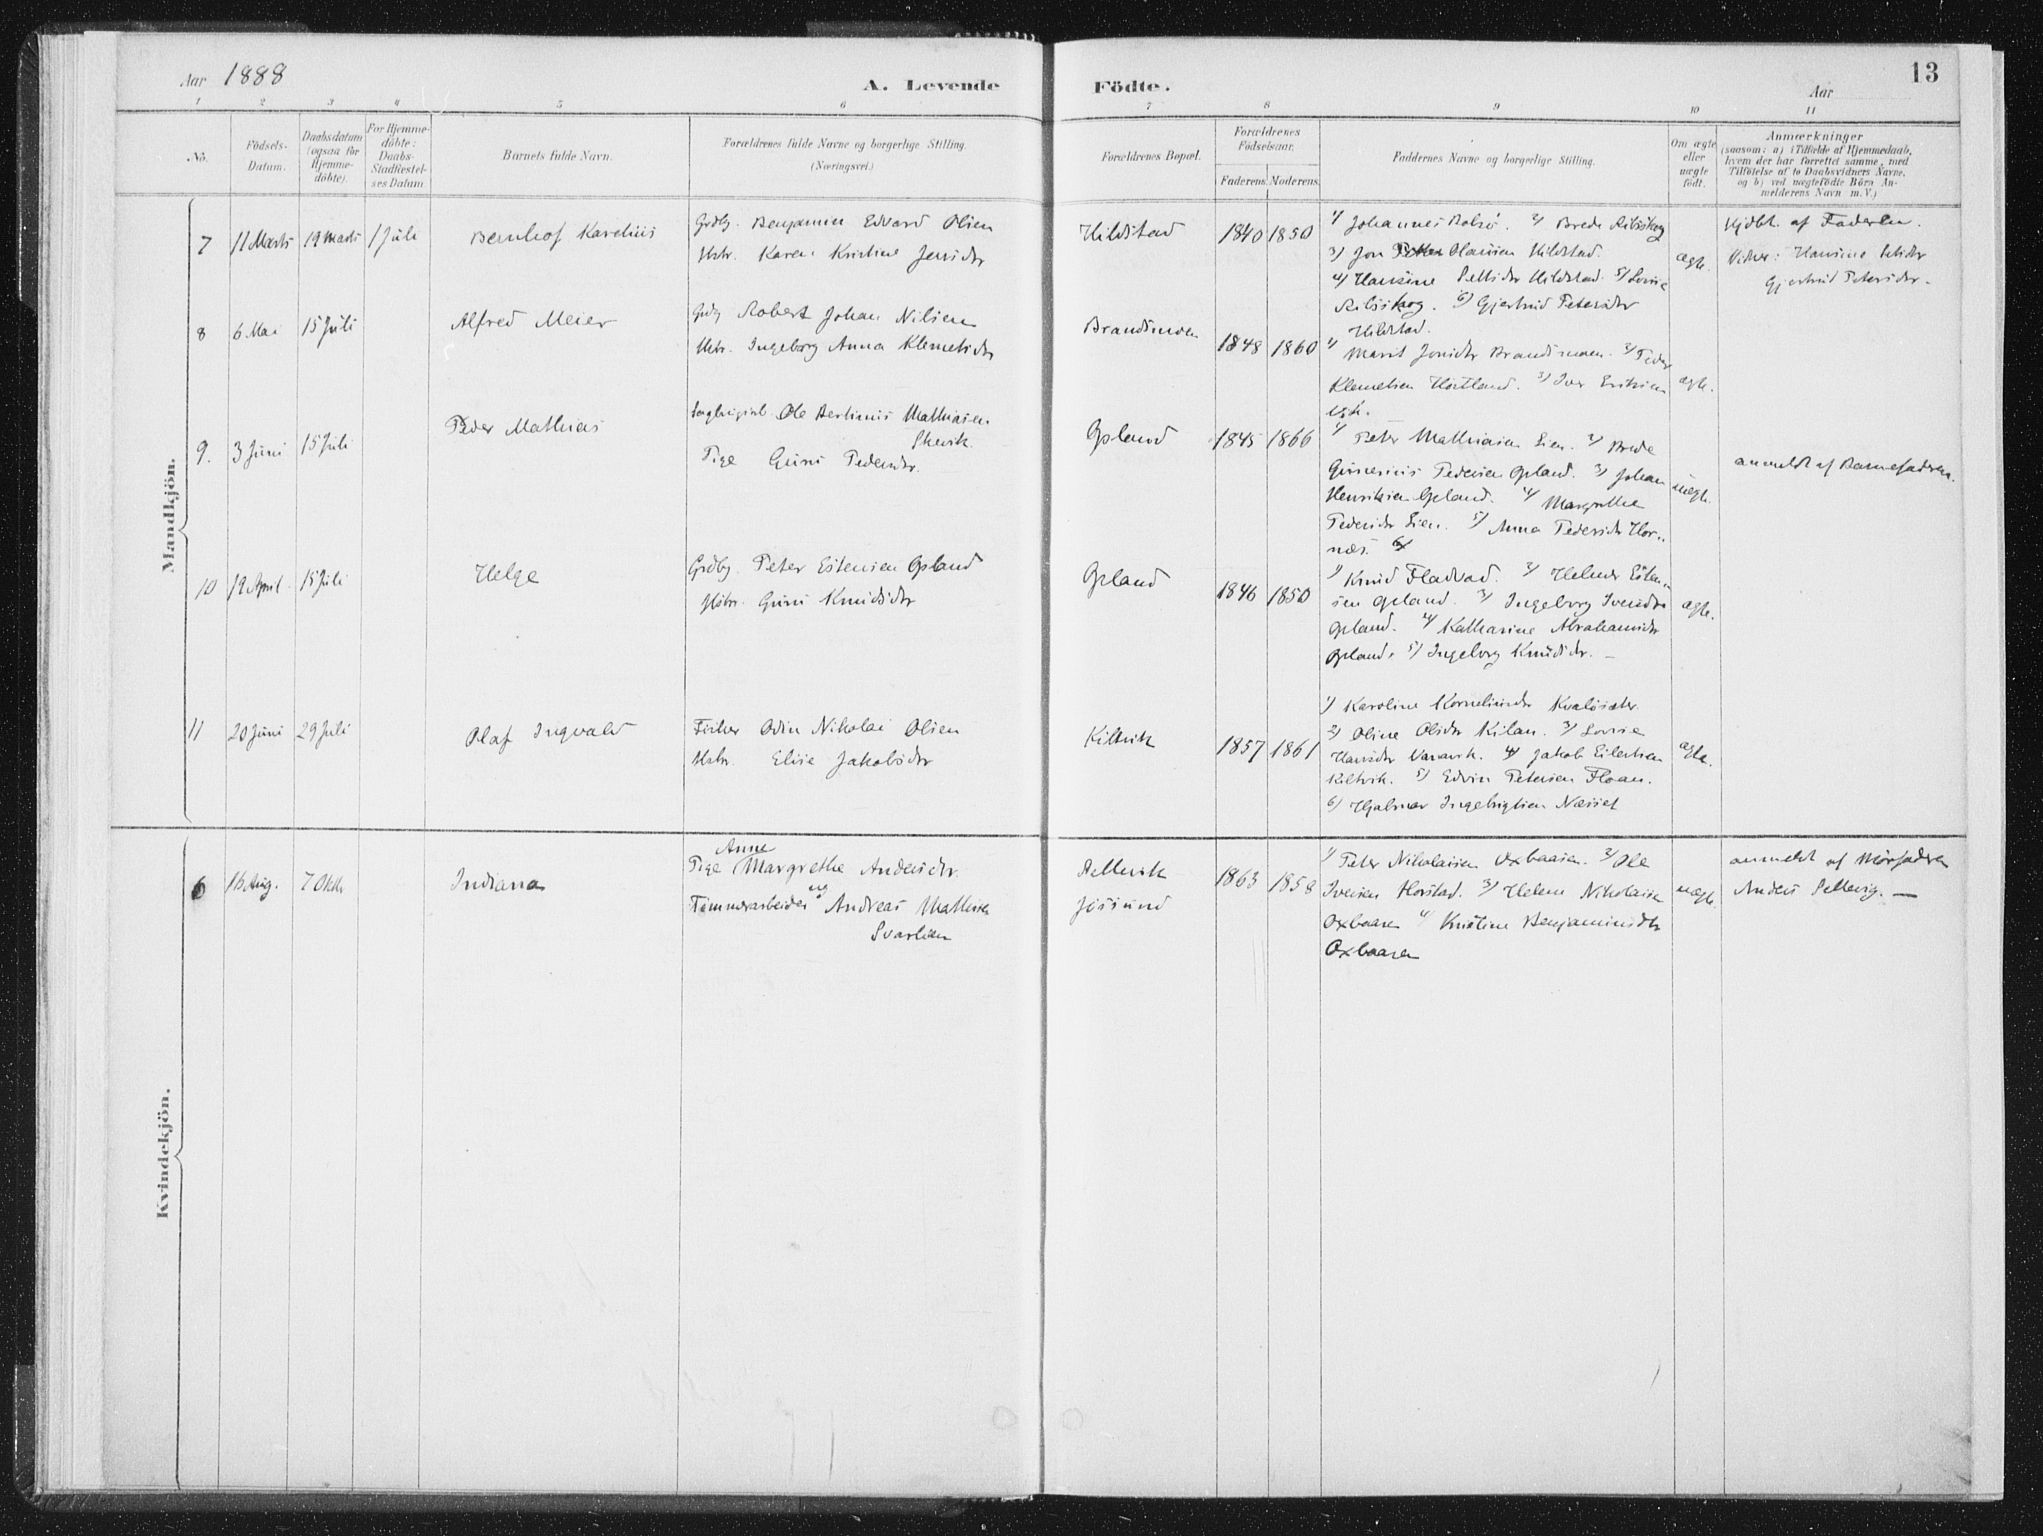 Aar 1888
A. Levende Födte.
Aar
13
1 2 3 4 5 6 7 8 9 10 11
No.
Födsels-Datum.
Daabsdatum (ogsaa for Hjemmedöbte).
For Hjemmedöbte: Daabs-Stadfæstelses Datum
Barnets fulde Navn.
Forældrenes fulde Navne og borgerlige Stilling. (Næringsvei.)
Forældrenes Bopæl.
Forældrenes Födselsaar.
Faderens. Moderens.
Faddernes Navne og borgerlige Stilling.
Om ægte eller uægte födt.
Anmærkninger
(saasom: a) i Tilfælde af Hjemmedaab, hvem der har forrettet samme, med Tilföielse af to Daabsvidners Navne, og b) ved uægtefödte Börn Anmelderens Navn m. V.)
Mandkjön.
7 11 Marts 19 Marts 1 Juli Bernhof Karelius
Grdbg. Benjamin Edvard Olsen
Hstr. Karen Kristine Jensdtr
Hildstad 1840 1850
1) Johannes . 2) Brede
3) Jon Hansen Hildstad.
4) Hansine Hildstad. 5) Lovise
. 6) Gjertrud Petersdtr
Hildstad.
ægte.
Hjdbt. af Faderen.
Vidner: Hansine
Gjertrud Petersdtr.
8 6 Mai 15 Juli Alfred Meier
Grdbg Robert Johan Nilsen
Hstr. Ingeborg Anna Klemetsdtr
Brandsmoen 1848 1860
1) Marit Jonsdtr Brandsmoen. 2) Peder
Klemetsen . 3) Iver Eriksen
ægte.
9. 3 Juni 15 Juli Peder Mathias
Ole Bertinus Mathiasen
Skevik
Pige Guru Pedersdtr.
Opland 1845 1866
1) Peter Mathiasen Lien. 2) Brede
Gunerius Pedersen Opland. 3) Johan
Henriksen Opland. 4) Margrethe
Pedersdtr Lien. 5) Anna Pedersdtr Hornæs.
uægte.
anmeldt af Barnefaderen.
10 19 April. 15 Juli Helge
Grdbg. Peter Estensen Opland
Hstr. Guru Knudsdtr
Opland 1846 1850
1) Knud Fladvad. 2) Helmer Esten-
sen Opland. 3) Ingeborg
Opland. 4) Katharine Abrahamsdtr
Opland. 5) Ingeborg Knudsdtr.
ægte.
11 20 Juni 29 Juli Olaf Ingvald
Fisker Odin Nikolai Olsen
Hstr. Elise Jakobsdtr
Kiltvik 1857 1861
1) Karoline Korneliusdtr
2) Oline Olsdtr Kilan. 3) Lovise
Hansdtr . 4) Jakob Eilertsen
Kiltvik. 5) Edvin Petersen Floan.
6) Hjalmar Ingebrigtsen Næsset
ægte.
Kvindekjön.
6 16 Aug. 7 Oktbr Indiana
Anne
Pige Margrethe Andersdtr.
og
Tømmerarbeider Andreas Mathisen
Svartlien
Jøssund 1863 1858
1) Peter Nikolaisen Oxbaasen. 2) Ole
Iversen Horstad. 3) Helene Nikolaisen
Oxbaasen 4) Kristine Benjaminsdtr
Oxbaasen
uægte.
anmeldt af Morfaderen
Anders